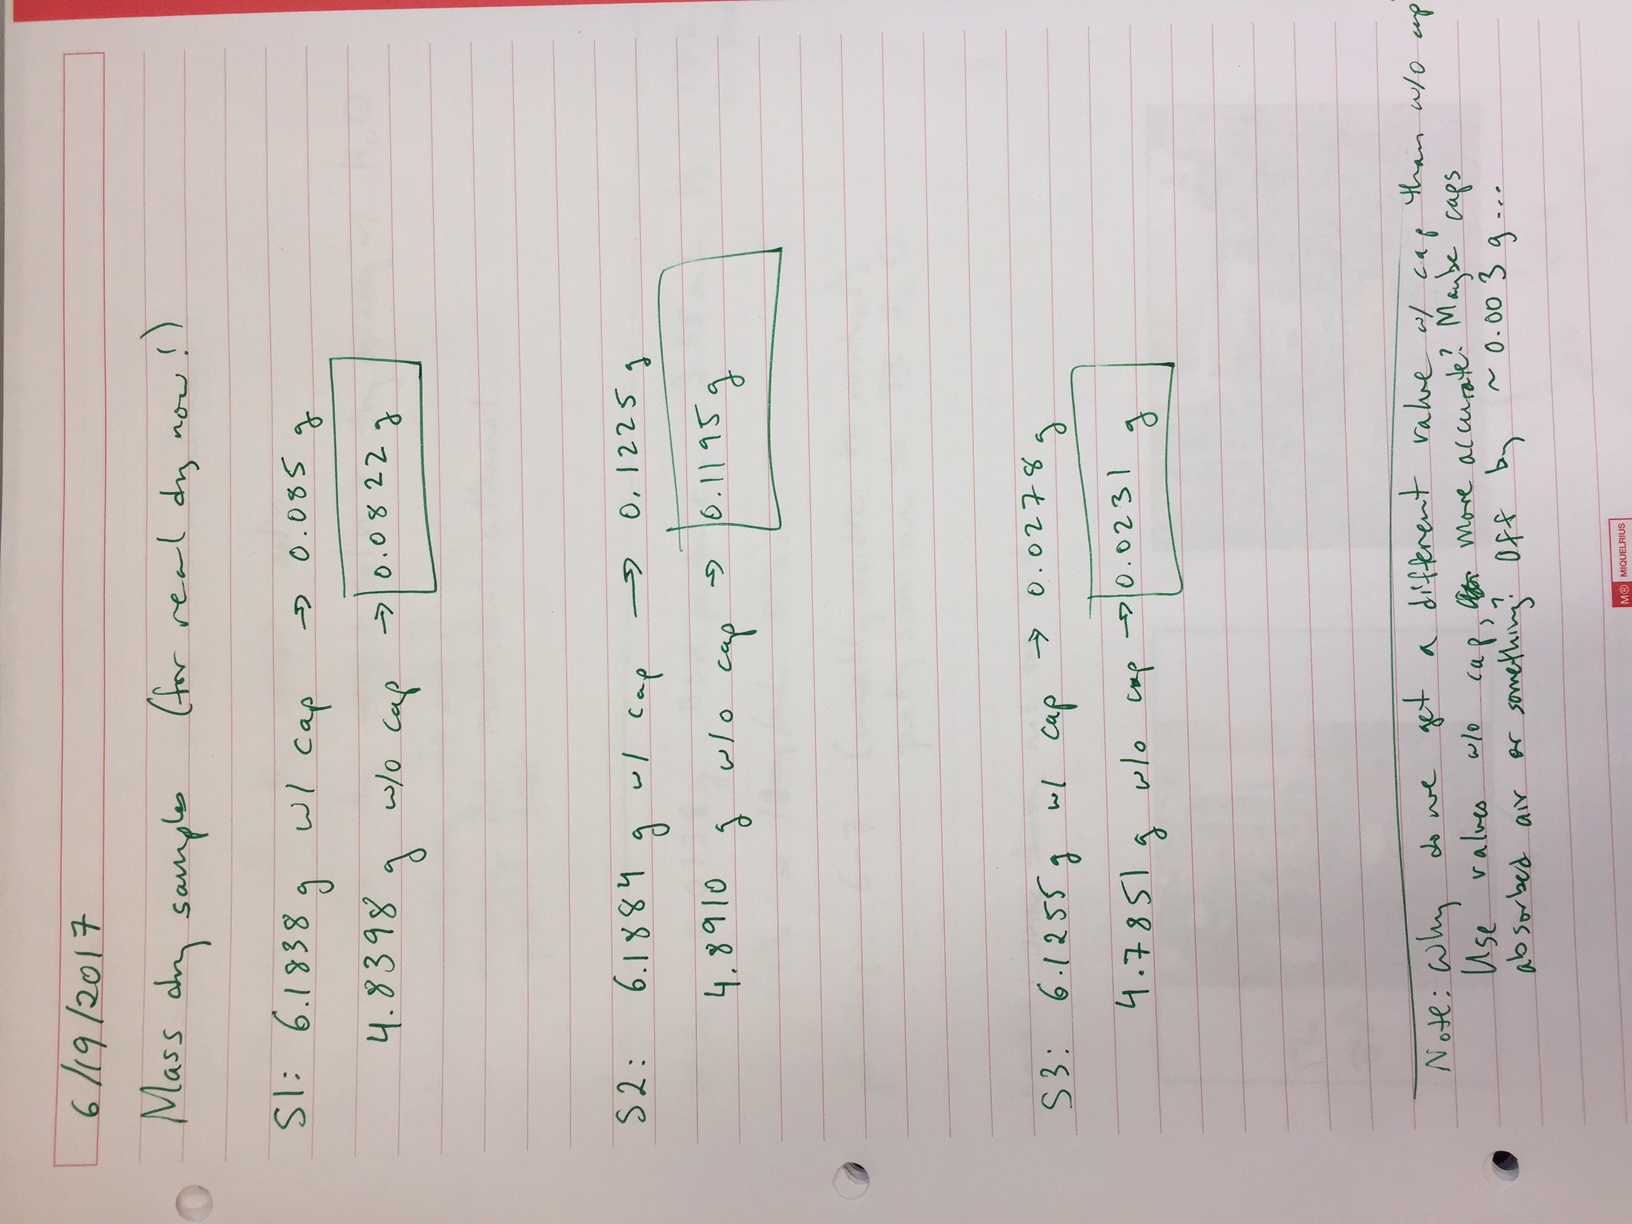 6/19/2017
Mass dry samples (for real dry now!)
S1: 6.1838 g w/ cap → 0.085 g
4.8398 g w/o cap → 0.0822 g
S2: 6.1884 g w/ cap → 0.1225 g
4.8910 g w/o cap → 0.1195 g
S3: 6.1255 g w/ cap → 0.0278 g
4.7851 g w/o cap → 0.0231 g
Note: Why do we get a different value w/ cap than w/o cap
Use values w/o cap, more accurate? Maybe caps
absorbed air or something? Off by ~0.003 g...
M® MIQUELRIUS